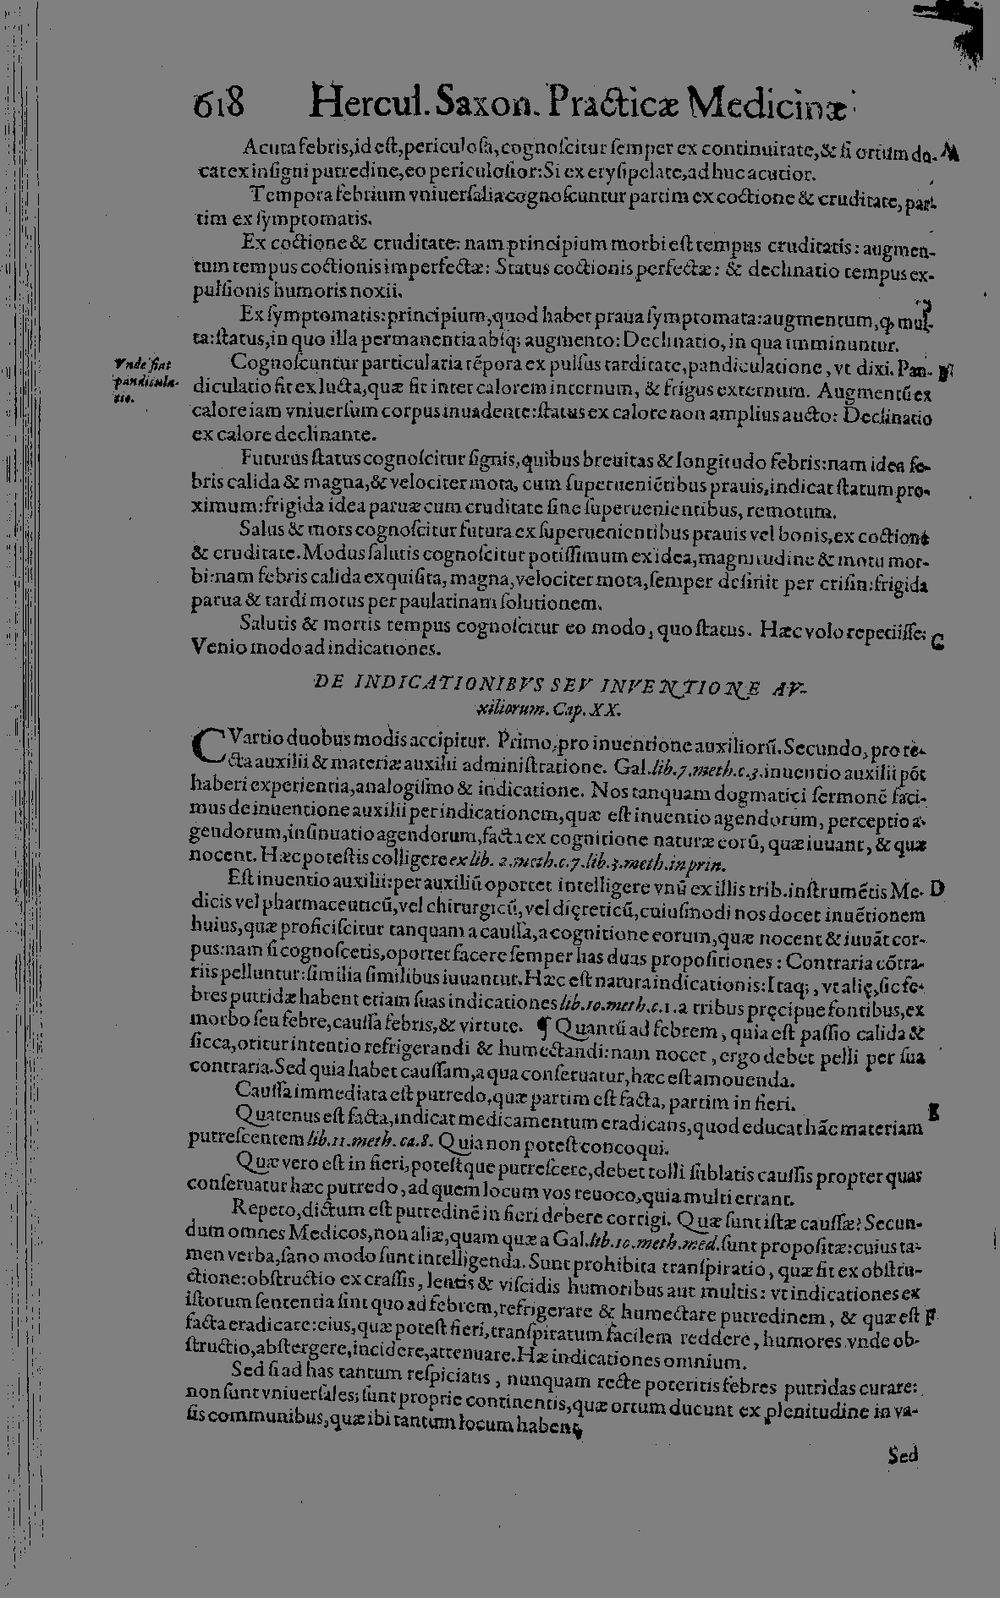 618 Hercul. Saxon. Practicæ Medicinæ
Acuta febris, id est, periculosa, cognoscitur semper ex continuitate, & si ortum du-
cat ex insigni putredine, eo periculosior: Si ex erysipelate, ad huc acutior.
Tempora febrium vniuersalia cognoscuntur partim ex coctione & cruditate, par-
tim ex symptomatis.
Ex coctione & cruditate: nam principium morbi est tempus cruditatis: augmen-
tum tempus coctionis imperfectæ: Status coctionis perfectæ: & declinatio tempus ex-
pulsionis humoris noxii.
Ex symptomatis: principium, quod habet praua symptomata: augmentum, q, mul-
ta: status, in quo illa permanentia absq; augmento: Declinatio, in qua imminuntur.
Vnde fiat
pandicula-
tio.
Cognoscuntur particularia tẽpora ex pulsus tarditate, pandiculatione, vt dixi. Pan-
diculatio fit ex lucta, quæ fit inter calorem internum, & frigus externum. Augmentũ ex
calore iam vniuersum corpus inuadente: status ex calore non amplius aucto: Declinatio
ex calore declinante.
Futurus status cognoscitur signis, quibus breuitas & longitudo febris: nam idea fe-
bris calida & magna, & velociter mota, cum superueniẽtibus prauis, indicat statum pro-
ximum: frigida idea paruæ cum cruditate sine superuenientibus, remotum.
Salus & mors cognoscitur futura ex superuenientibus prauis vel bonis, ex coctione
& cruditate. Modus salutis cognoscitur potissimum ex idea, magnitudine & motu mor-
bi: nam febris calida exquisita, magna, velociter mota, semper desinit per crisin: frigida
parua & tardi motus per paulatinam solutionem.
Salutis & mortis tempus cognoscitur eo modo, quo status. Hæc volo repetiisse: C
Venio modo ad indicationes.
DE INDICATIONIBVS SEV INVENTIONE AV-
xiliorum. Cap. XX.
CVartio duobus modis accipitur. Primo, pro inuentione auxiliorũ. Secundo, pro re-
cta auxilii & materiæ auxilii administratione. Gal. lib. 7. meth. c. 3. inuentio auxilii põt
haberi experientia, analogismo & indicatione. Nos tanquam dogmatici sermonẽ faci-
mus de inuentione auxilii per indicationem, quæ est inuentio agendorum, perceptio a-
gendorum, insinuatio agendorum, facta ex cognitione naturæ eorũ, quæ iuuant, & quæ
nocent. Hæc potestis colligere ex lib. 2. meth. c. 7. lib. 3. meth. in prin.
Est inuentio auxilii: per auxiliũ oportet intelligere vnũ ex illis trib. instrumẽtis Me- D
dicis vel pharmaceuticũ, vel chirurgicũ, vel dięreticũ, cuiusmodi nos docet inuẽtionem
huius, quæ proficiscitur tanquam a caussa, a cognitione eorum, quæ nocent & iuuãt cor-
pus: nam si cognoscetis, oportet facere semper has duas propositiones: Contraria cõtra-
riis pelluntur: similia similibus iuuantur. Hæc est natura indicationis: Itaq;, vt alię, sic fe-
bres putridæ habent etiam suas indicationes lib. 10. meth. c. 1. a tribus pręcipue fontibus, ex
morbo seu febre, caussa febris, & virtute. ¶ Quantũ ad febrem, quia est passio calida &
sicca, oritur intentio refrigerandi & humectandi: nam nocet, ergo debet pelli per sua
contraria. Sed quia habet caussam, a qua conseruatur, hæc est amouenda.
Caussa immediata est putredo, quæ partim est facta, partim in fieri.
Quatenus est facta, indicat medicamentum eradicans, quod educat hãc materiam E
putrescentem lib. 11. meth. ca. 8. Quia non potest concoqui.
Quæ vero est in fieri, potestque putrescere, debet tolli sublatis caussis propter quas
conseruatur hæc putredo, ad quem locum vos reuoco, quia multi errant.
Repeto, dictum est putredinẽ in fieri debere corrigi. Quæ sunt istæ caussæ? Secun-
dum omnes Medicos, non aliæ, quam quæ a Gal. lib. 10. meth. med. sunt propositæ: cuius ta-
men verba, sano modo sunt intelligenda. Sunt prohibita transpiratio, quæ fit ex obstru-
ctione: obstructio ex crassis, lentis & viscidis humoribus aut multis: vt indicationes ex
istorum sententia sint quo ad febrem, refrigerare & humectare putredinem, & quæ est F
facta eradicare: eius, quæ potest fieri, transpiratum facilem reddere, humores vnde ob-
structio, abstergere, incidere, attenuare. Hæ indicationes omnium.
Sed si ad has tantum respiciatis, nunquam recte poteritis febres putridas curare:
non sunt vniuersales; sunt proprie continentis, quæ ortum ducunt ex plenitudine in va-
sis communibus, quæ ibi tantum locum habent,
Sed